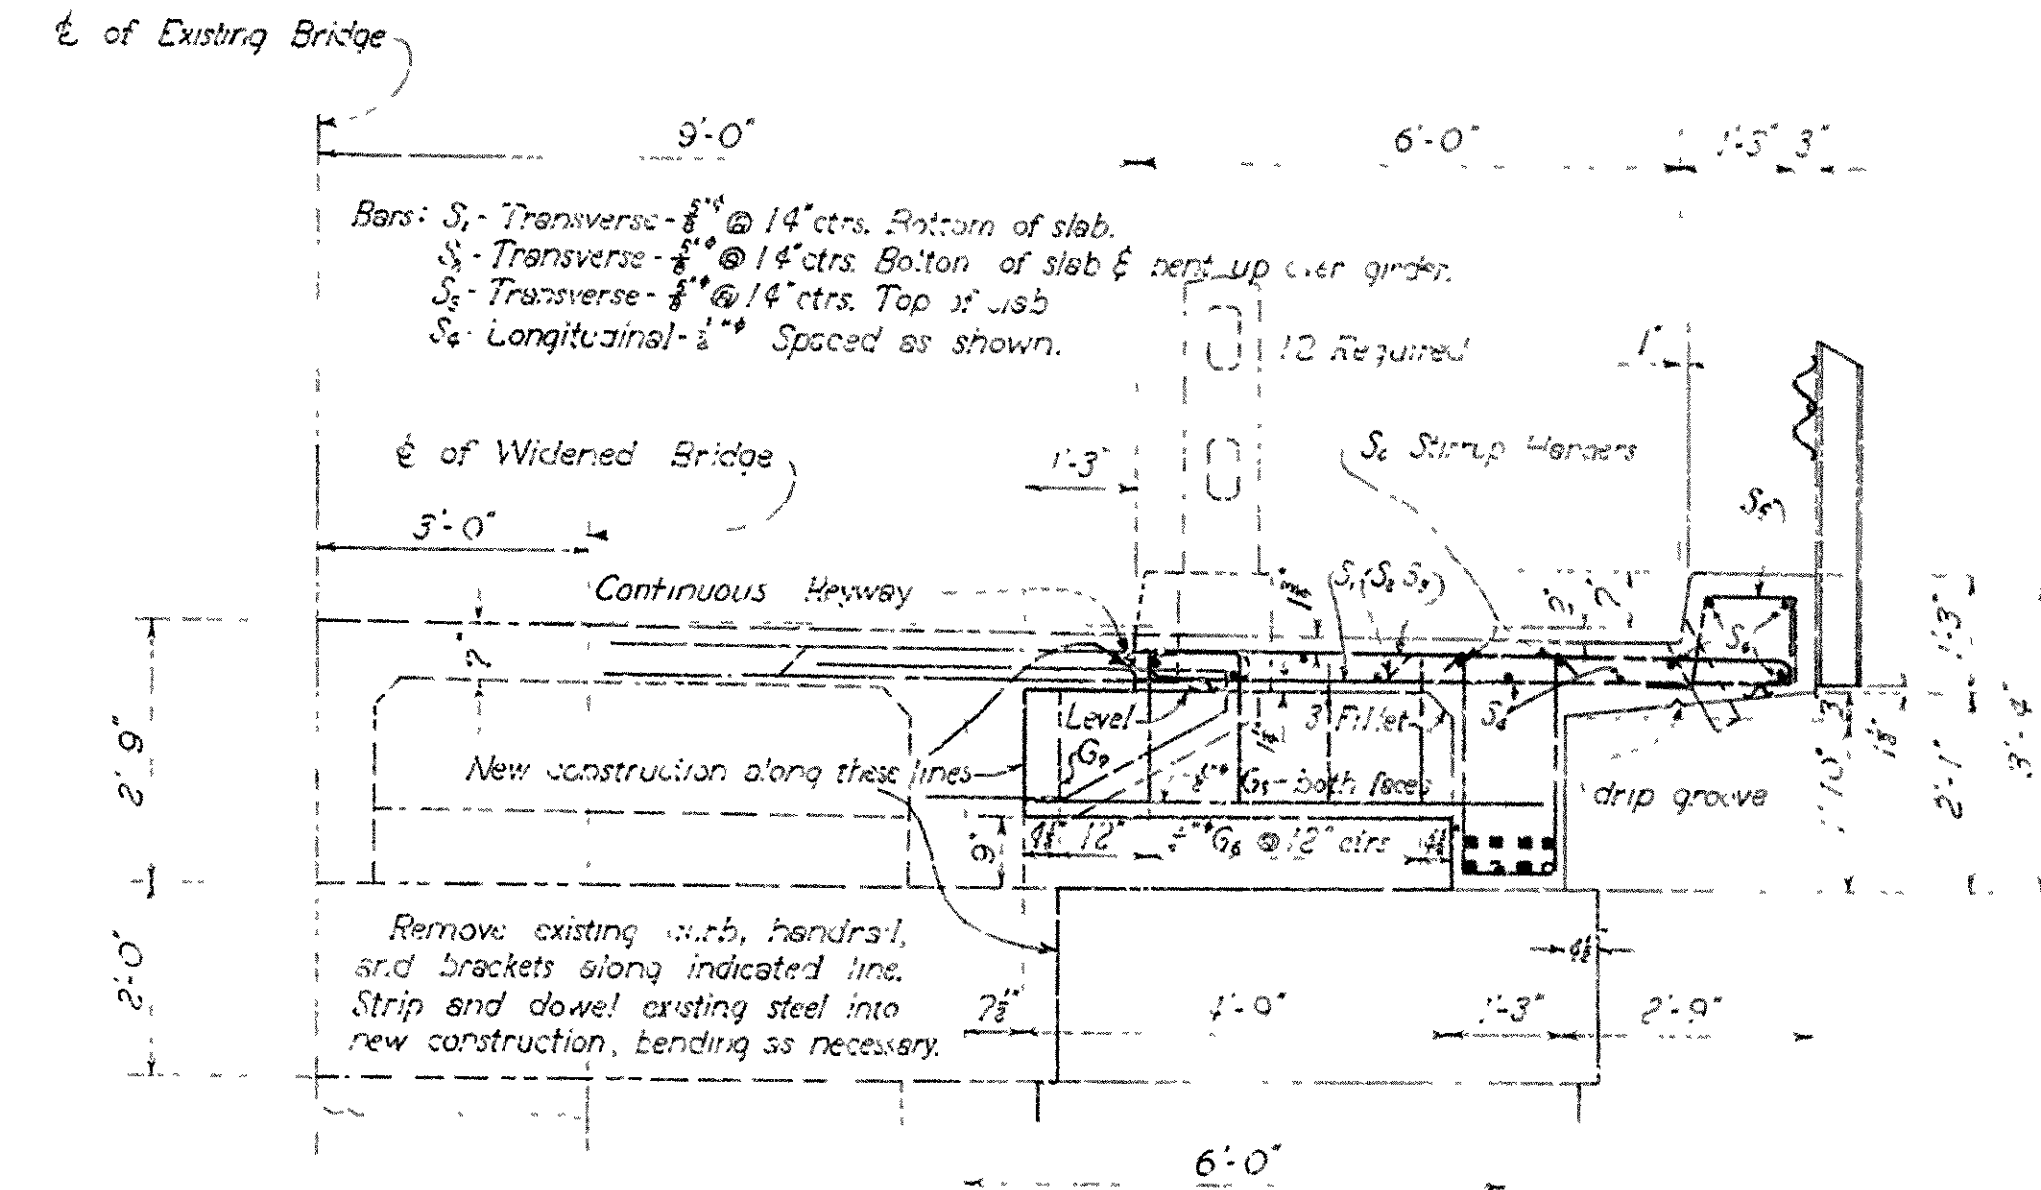 ℄ of Existing Bridge
9'-0"
6'-0"
1'-3"
3"
Bars: S₁- Transverse - ⅝"ᶲ @ 14" ctrs. Bottom of slab.
- Transverse - ⅝"ᶲ @ 14" ctrs. Botton of slab & bent up over girder.
- Transverse - ⅝"ᶲ @ 14" ctrs. Top of slab
S₄- Longitudinal - ½"ᶲ Spaced as shown.
12 Required
1"
℄ of Widened Bridge
1'-3"
Stirrup Hangers
3'-0"
Continuous Keyway
7"
1'-3"
2'-9"
Level
3" Fillet
3'-4"
New construction along these lines
both faces
drip groove
1'-10"
2'-1"
9"
4½" 12"
@ 12" ctrs
4½"
Remove existing curb, handrail,
and brackets along indicated line.
Strip and dowel existing steel into
new construction, bending as necessary.
2'-0"
4½"
7½"
4'-9"
1'-3"
2'-9"
6'-0"